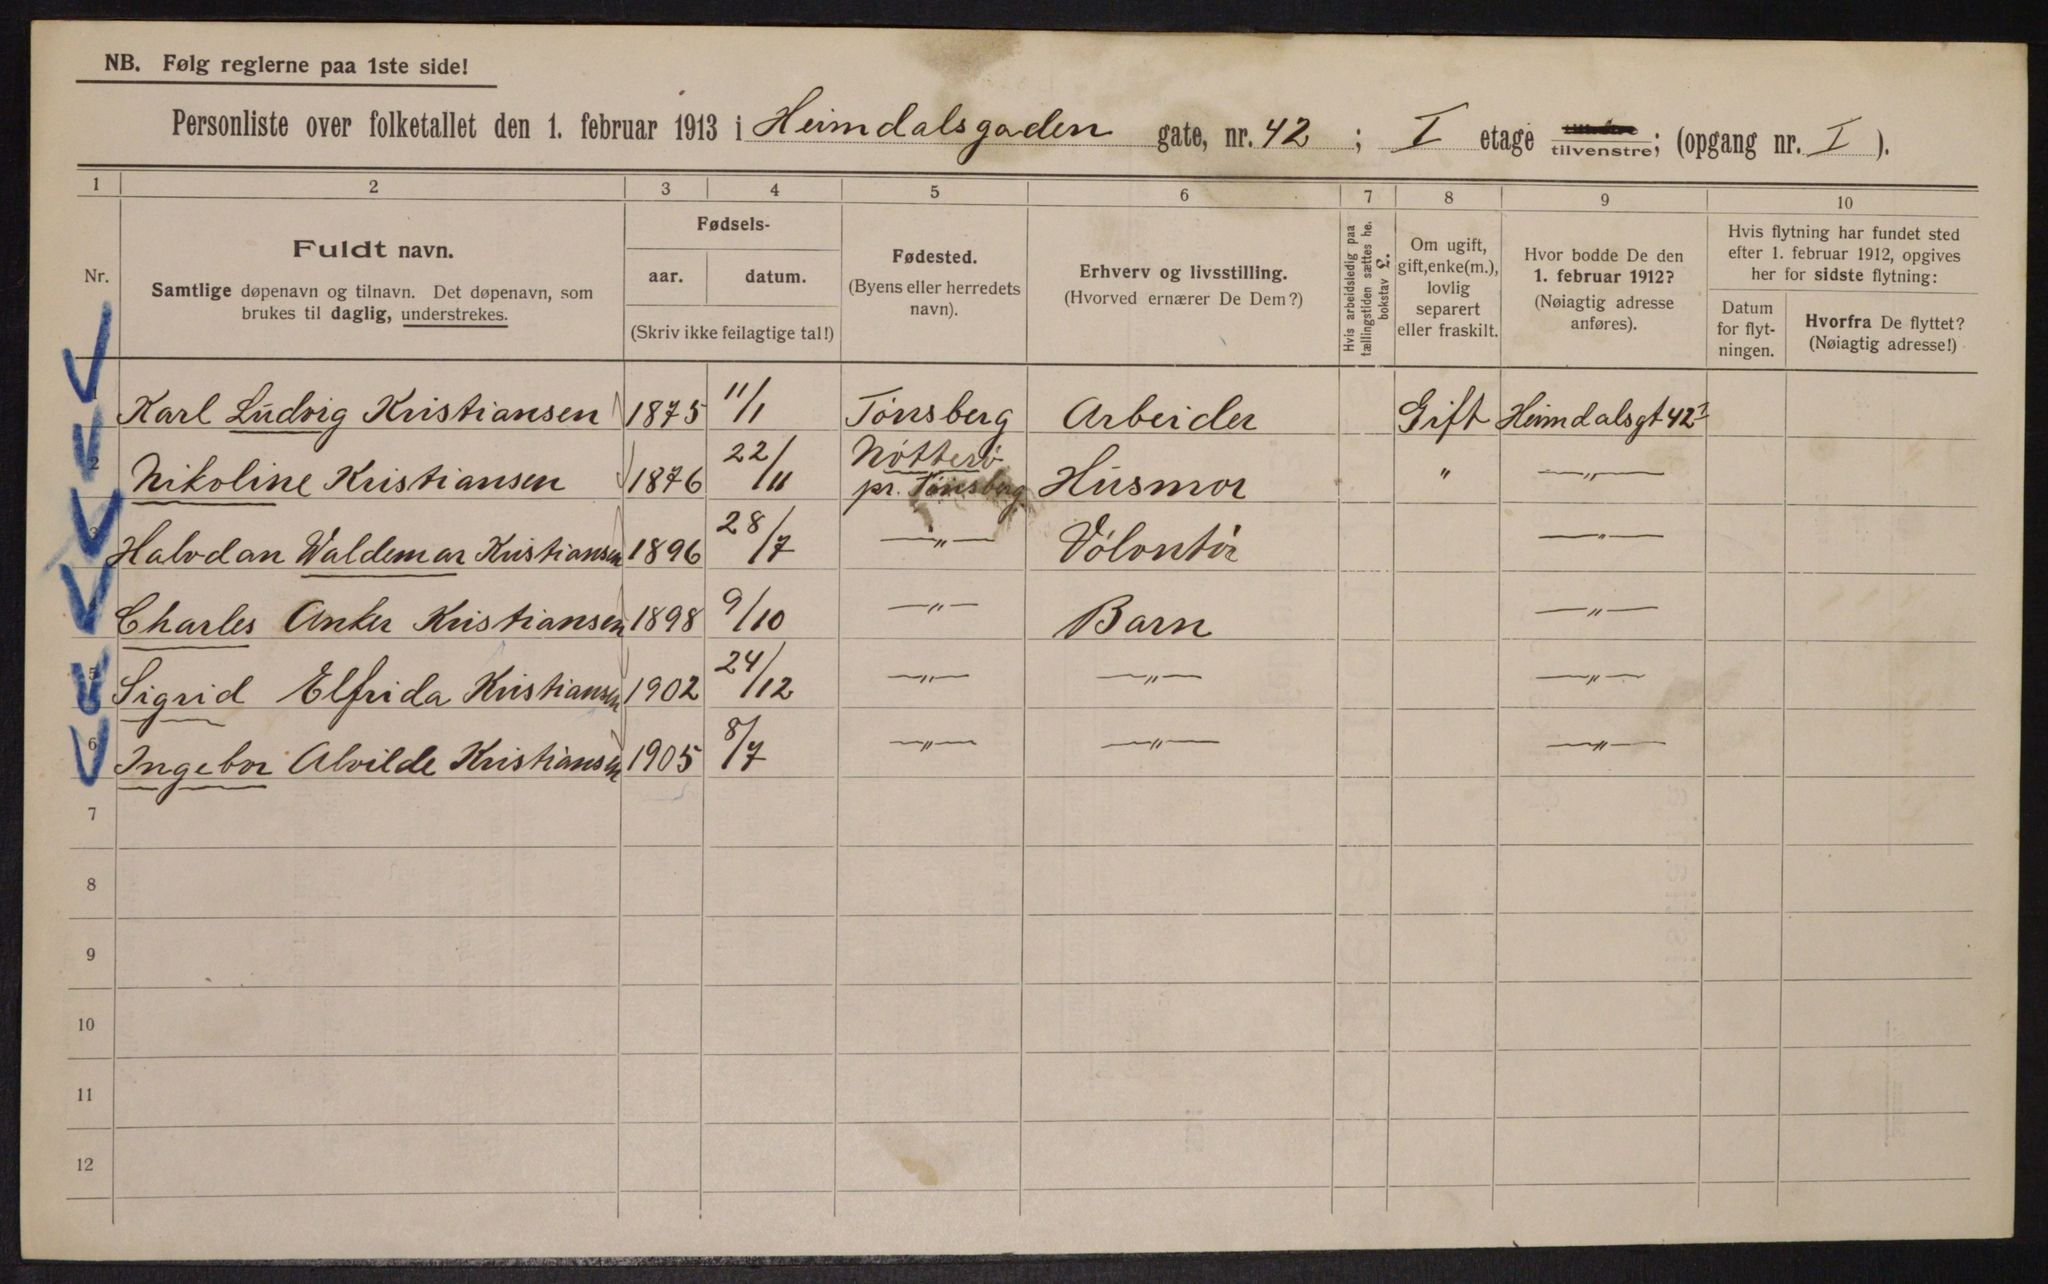 NB. Følg reglerne paa 1ste side!
Personliste over folketallet den 1. februar 1913 i Heimdalsgaden gate, nr. 42 ; I etage tilvenstre; (opgang nr. I ).
1 2 3 4 5 6 7 8 9 10
Nr.
Fuldt navn.
Samtlige døpenavn og tilnavn. Det døpenavn, som
brukes til daglig, understrekes.
Fødsels-
aar. datum.
(Skriv ikke feilagtige tal!)
Fødested.
(Byens eller herredets
navn).
Erhverv og livsstilling.
(Hvorved ernærer De Dem?)
Hvis arbeidsledig paa
tællingstiden sættes he.
bokstav L.
Om ugift,
gift,enke(m.),
lovlig
separert
eller fraskilt.
Hvor bodde De den
1. februar 1912?
(Nøiagtig adresse
anføres).
Hvis flytning har fundet sted
efter 1. februar 1912, opgives
her for sidste flytning:
Datum
for flyt-
ningen.
Hvorfra De flyttet?
(Nøiagtig adresse!)
Karl Ludvig Kristiansen 1875 11/1 Tønsberg Arbeider Gift Heimdalsgt 42 I
2 Nikoline Kristiansen 1876 22/11 Nøtterø pr. Tønsberg Husmor " —„—
3 Halvdan Waldemar Kristiansen 1896 28/7 —„— Volontør —„—
Charles Anker Kristiansen 1898 9/10 —„— Barn —„—
5 Sigrid Elfrida Kristiansen 1902 24/12 —„— —„— —„—
6 Ingebor Alvilde Kristiansen 1905 8/7 —„— —„— —„—
7
8
9
10
11
12